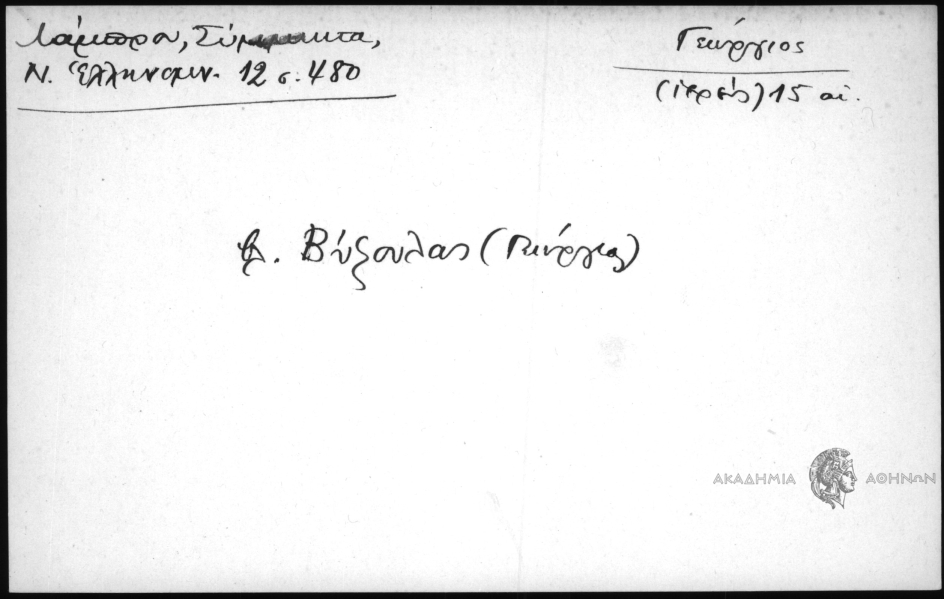 Λάμπρου, Σύμμικτα,
Ν. Ἑλληνομν. 12 σ. 480
Γεώργιος
(ἱερεύς) 15 αἰ.
Βύζουλας (Γεώργιος)
ΑΚΑΔΗΜΙΑ ΑΘΗΝΩΝ